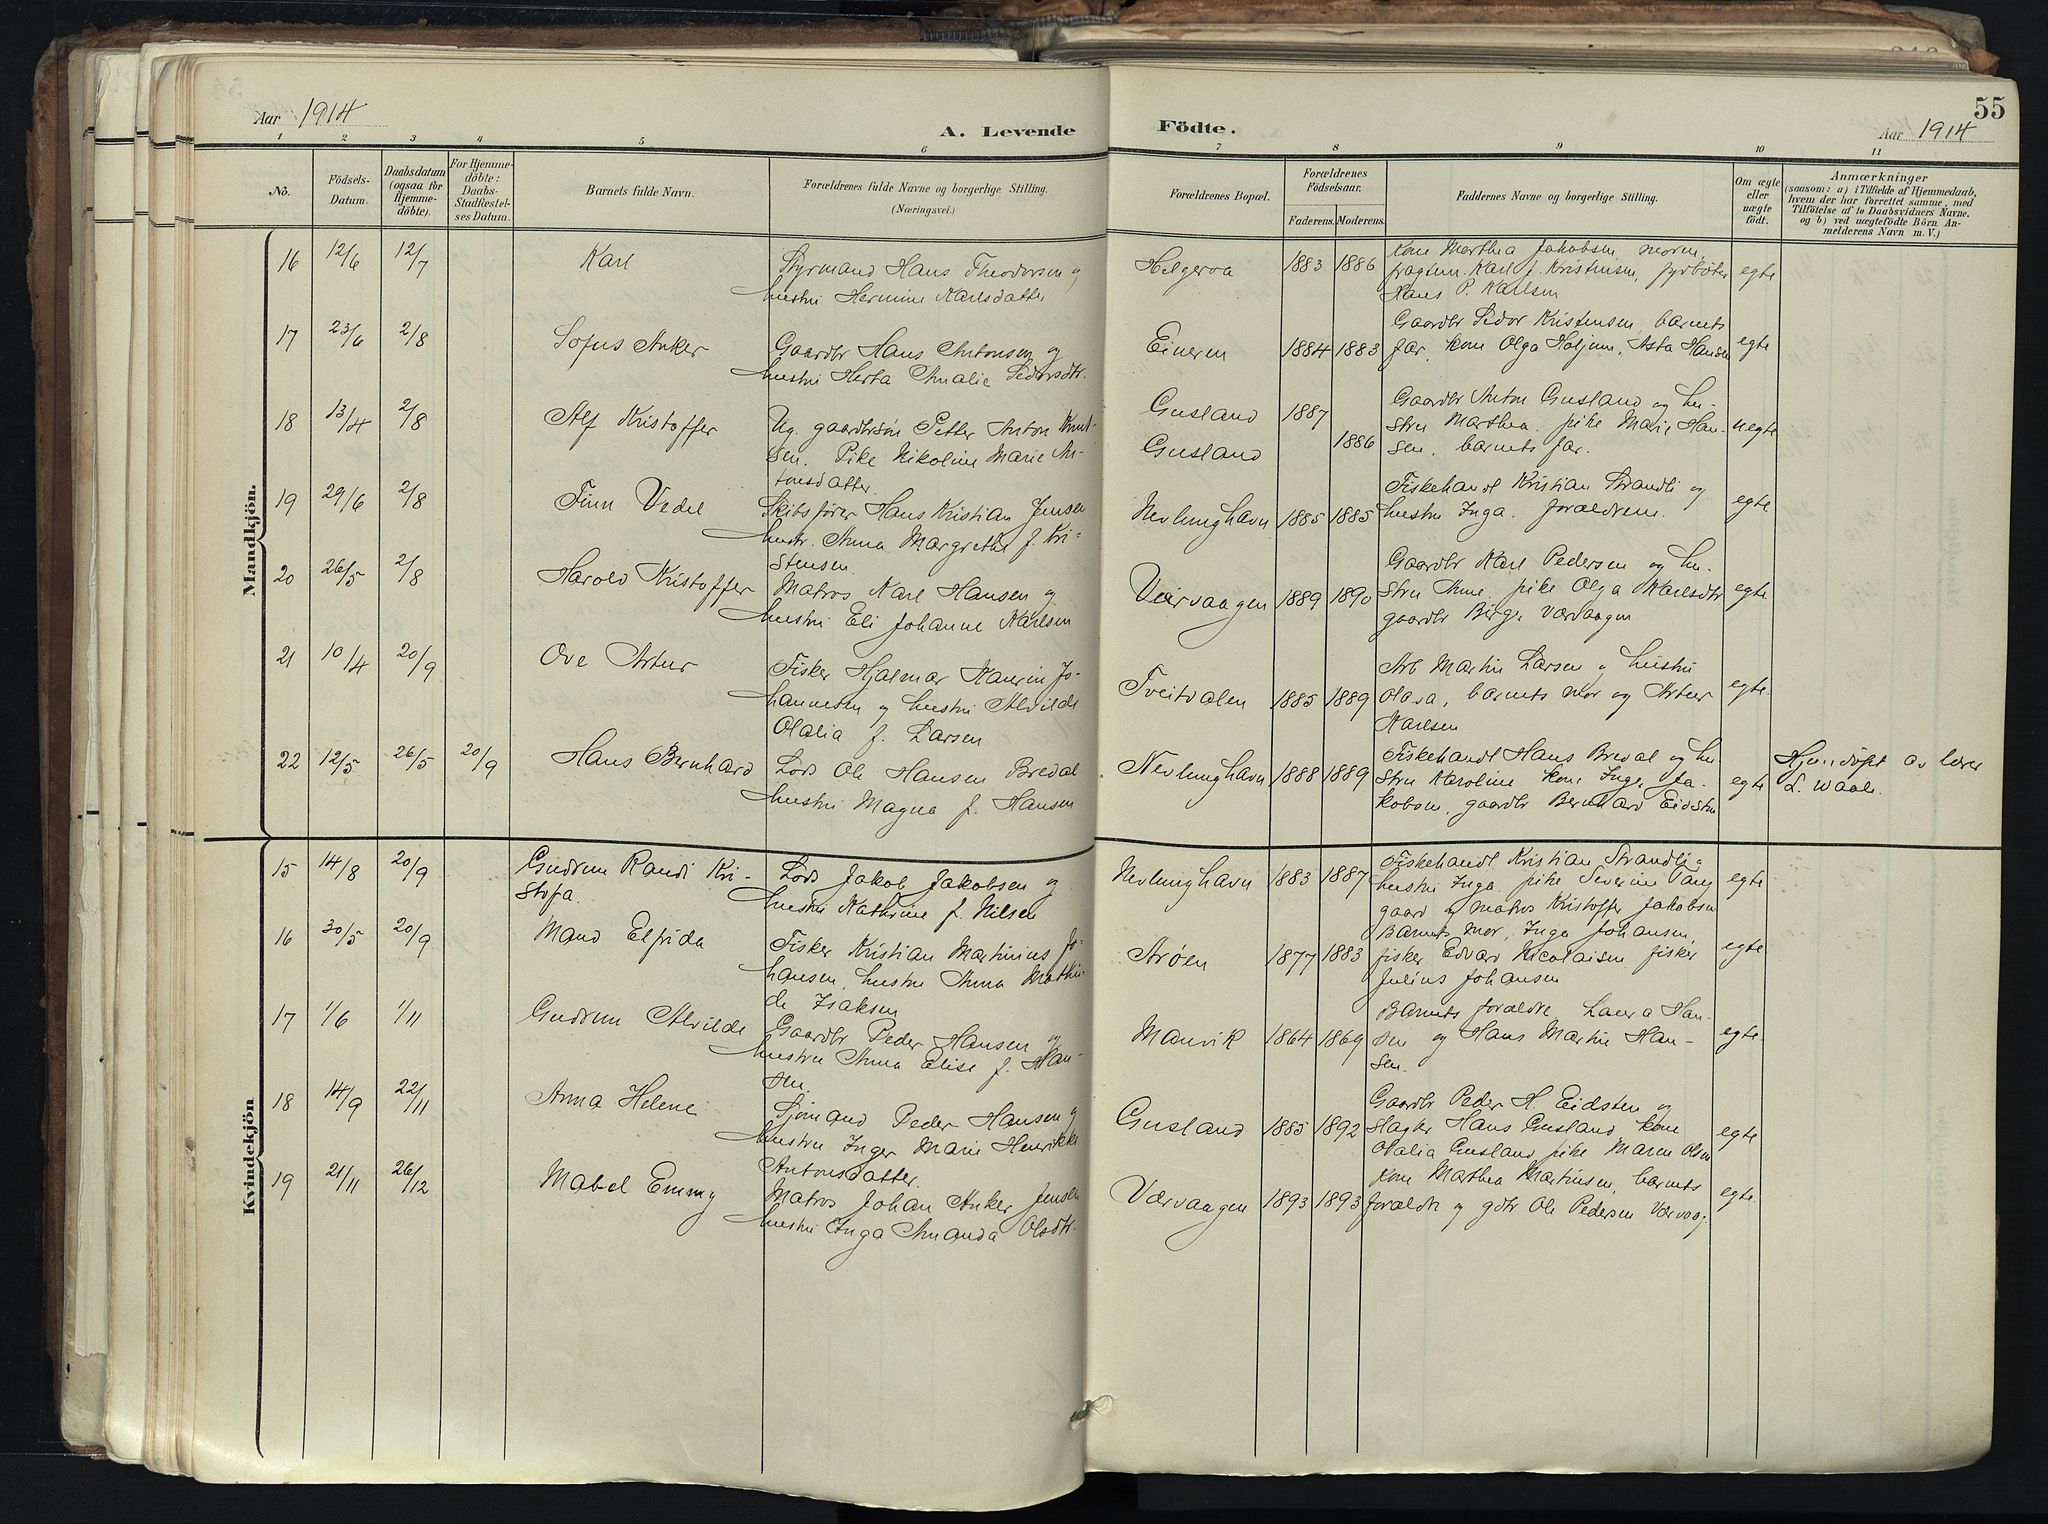 Aar 1914
A. Levende
1 2 3 4 5 6
No.
Födsels-
Datum.
Daabsdatum
(ogsaa for
Hjemme-
döbte).
For Hjemme-
döbte:
Daabs-
Stadfæstel-
ses Datum.
Barnets fulde Navn.
Forældrenes fulde Navne og borgerlige Stilling.
(Næringsvei.)
Mandkjön.
16 12/6 12/7 Karl
Styrmand Hans Theodorsen og
hustru Hermine Karlsdatter
17 23/6 2/8 Sofus Anker
Gaardbr Hans Antonsen og
hustru Herta Amalie Sidorsdtr.
18 13/4 2/8 Alf Kristoffer
Ug. gaardbrsøn Petter Anton Knut-
sen. Pike Nikoline Marie An-
tonsdatter.
19 29/6 2/8 Finn Vedel
Skibsfører Hans Kristian Jensen
hustr. Anna Margrethe f. Kri-
stensen
20 26/5 2/8 Harold Kristoffer
Matros Karl Hansen og
hustru Eli Johanne Karlsen
21 10/4 20/9 Ove Artur
Fisker Hjalmar Kaurin Jo-
hannesen og hustru Alvilde
Olalia f. Larsen
22 12/5 26/5 20/9 Hans Bernhard
Lods Ole Hansen Bredal
hustru Magna f. Hansen
Kvindekjön
15 14/8 20/9 Gudrun Randi Kri-
stofa.
Lods Jakob Jakobsen og
hustru Kathrine f. Nilsen
16 30/5 20/9 Maud Elfrida
Fisker Kristian Martinius Jo-
hansen, hustru Anna Mathil-
de Isaksen
17 1/6 1/11 Gudrun Alvilde
Gaardbr Peder Hansen og
hustru Anna Elise f. Han-
sen.
18 14/9 22/11 Anna Helene
Sjømand Peder Hansen og
hustru Inger Marie Henrikke
Antonsdatter.
19 21/11 26/12 Mabel Emmy
Matros Johan Anker Jensen
hustru Inga Amanda Olsdtr.
55
Födte.
Aar 1914
7 8 9 10 11
Forældrenes Bopæl.
Forældrenes
Födselsaar.
Faderens. Moderens.
Faddernes Navne og borgerlige Stilling.
Om ægte
eller
uægte
födt.
Anmærkninger
(saasom: a) i Tilfælde af Hjemmedaab,
hvem der har forrettet samme, med
Tilföielse af to Daabsvidners Navne,
og b) ved uægtefödte Börn An-
melderens Navn m. V.)
Helgeroa 1883 1886
Kone Marthea Jakobsen, moren,
fragtem. Karl J. Kristensen, fyrbøter
Hans P. Karlsen
egte
Eineren 1884 1883
Gaardbr Sidor Kristensen, barnets
far, kone Olga Holjum, Asta Hansen
egte
Gusland 1887
Gusland 1886
Gaardbr Anton Gusland og hu-
stru Marthea, pike Marie Han-
sen, barnets far.
uegte
Nevlunghavn 1885 1885
Fiskehandl Kristian Strandli og
hustru Inga, forældrene.
egte
Værvaagen 1889 1890
Gaardbr Karl Pedersen og hu-
stru Anne, pike Olga Karlsdtr
gaardbr Birge Værvaagen
egte
Tveitdalen 1885 1889
Arb Martin Larsen og hustru
Olava, barnets mor og Artur
Karlsen
egte.
Nevlunghavn 1888 1889
Fiskehandl Hans Bredal og hu
stru Karoline kone Inger Ja-
kobsen, gaardbr Bernhard Eidsten
egte
Hjemdøpt av lærer
L. Waale.
Nevlunghavn 1883 1887
Fiskehandl Kristian Strandli og
hustru Inga. pike Severine Tang
gaard og matros Kristoffer Jakobsen
egte
Arøen 1877 1883
Barnets mor, Inga Johansen,
fisker Edvard Nicolaisen fisker
Julius Johansen
egte
Manvik 1864 1869
Barnets forældre Laura Han-
sen og Hans Martin Han-
sen.
egte.
Gusland 1885 1892
Gaardbr Peder H. Eidsten og
Slagter Hans Gusland kone
Olalia Gusland pike Maren Olsen
egte
Værvaagen 1893 1893
Kone Marthea Martinsen, barnets
forældre og gdbr Ole Pedersen Værvaag
egte.